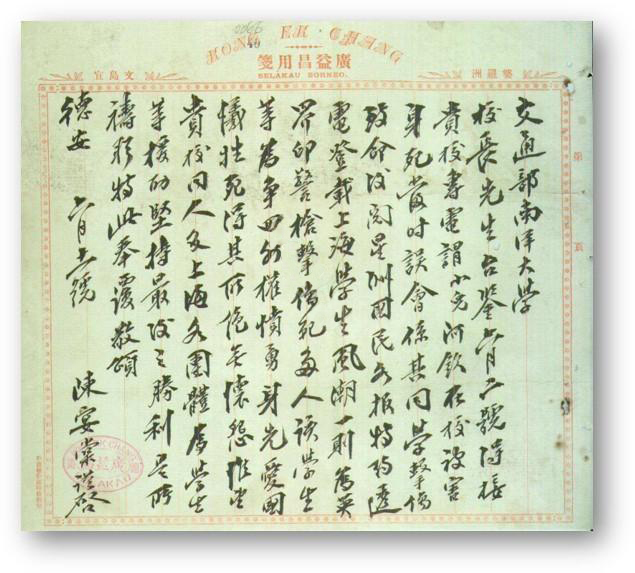 0066
40
KONG EK CHANG
廣益昌用箋
SELAKAU BORNEO.
婆羅洲
文島宜
第
頁
交通部南洋大学
校長先生台鉴六月六號得接
貴校壽電謂小兒河欽在校被害
身死當时誤會係其同学擊傷
致命後閱星洲國民各报特约透
電登載上海学生風潮一則為英
界印警槍擊傷死多人該学生
等為爭回利權憤勇身先愛國
犧牲死得其所絶無懷怨惟望
貴校同人及上海各團體為学生
等援助堅持最後之勝利是所
禱頼特此奉覆敬頌
德安
六月十六號
陳宴棠謹啓